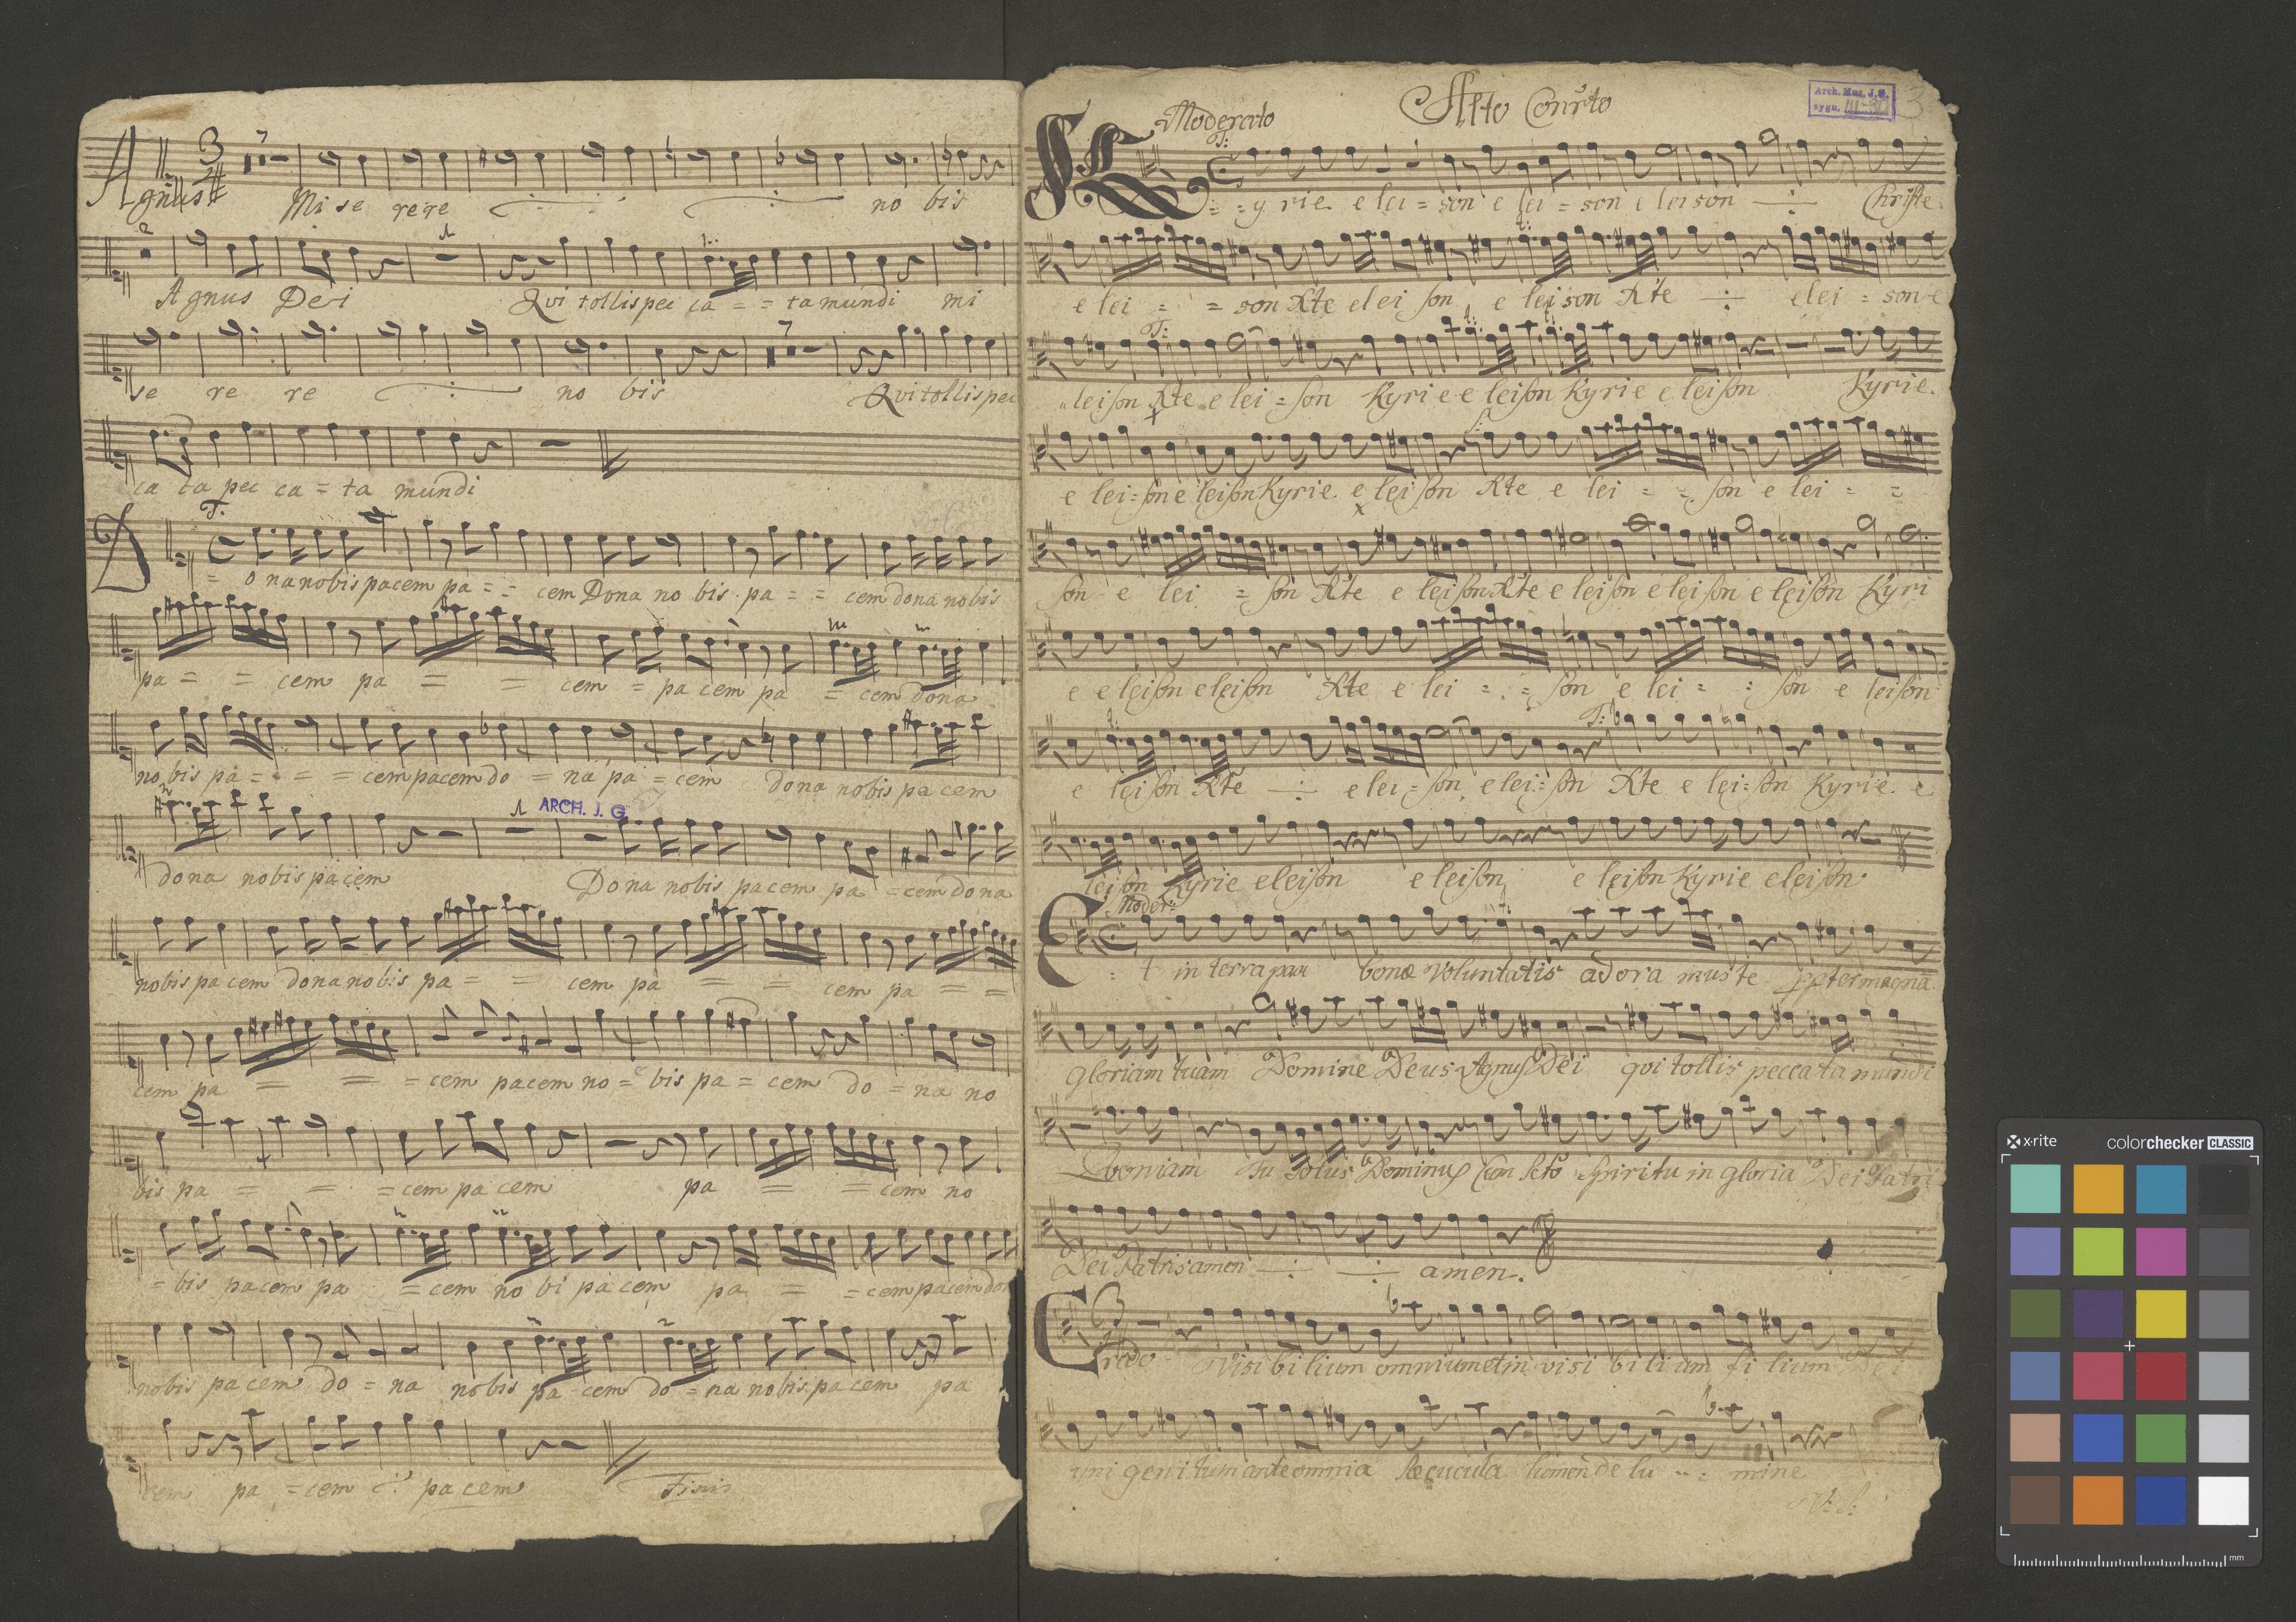 Agnus Mi se re re no bis
Agnus Dei Qui tollis pec ca = = ta mundi mi
se re re no bis Qui tollis pec
ca ta pec ca = ta mundi
D = o na nobis pacem pa = = cem Dona no bis pa = = cem dona nobis
pa = = cem pa = = cem = pa cem pa = cem dona
nobis pa = = = cem pacem do = na pa = cem dona nobis pa cem
ARCH. J. G.
dona nobis pacem Dona nobis pacem pa = cem dona
nobis pa cem dona nobis pa = = cem pa = = cem pa = =
cem pa = = = cem pacem no = bis pa = cem do = na no
bis pa = = = cem pa cem pa = = cem no
= bis pacem pa = cem no bi pa cem pa = = cem pacem do
nobis pa cem do = na nobis pa cem do = na nobis pa cem pa
cem pa = cem pacem
Finis
Alto Conrto
Arch. Muz. J. G.
sygn. III-
3
Moderato
T:
K = = y rie e lei = son e lei = son e leison Christe
e lei = = son Xte elei son e leison Xte elei = son e
T:
leison Xte e lei = son Kyrie e leison Kyrie e leison Kyrie
e lei = son e leison Kyrie e leison Xte e lei = = son e lei = =
son e lei = son Xte e leison Xte e leison e leison e leison Kyri
e e leison eleison Xte e lei = = son e lei = = son e leison
T:
e leison Xte elei = son elei = son Xte e lei = son Kyrie e
leison Kyrie eleison e leison e leison Kyrie eleison
Moder:
E = t in terra pax bonæ voluntatis adora mus te pptermagnã
gloriam tuam Domine Deus Agnus Dei qui tollis pecca ta mundi
Quoniam tu solus Dominus Cum Scto Spiritu in gloria Dei Patri
Dei Patris amen amen.
Credo Visi bi lium omnium et in visi bi li um fi lium Dei
uni geni tum ante omnia sæcucula lumen de lu = : mine
V: S:
x·rite colorchecker CLASSIC
mm